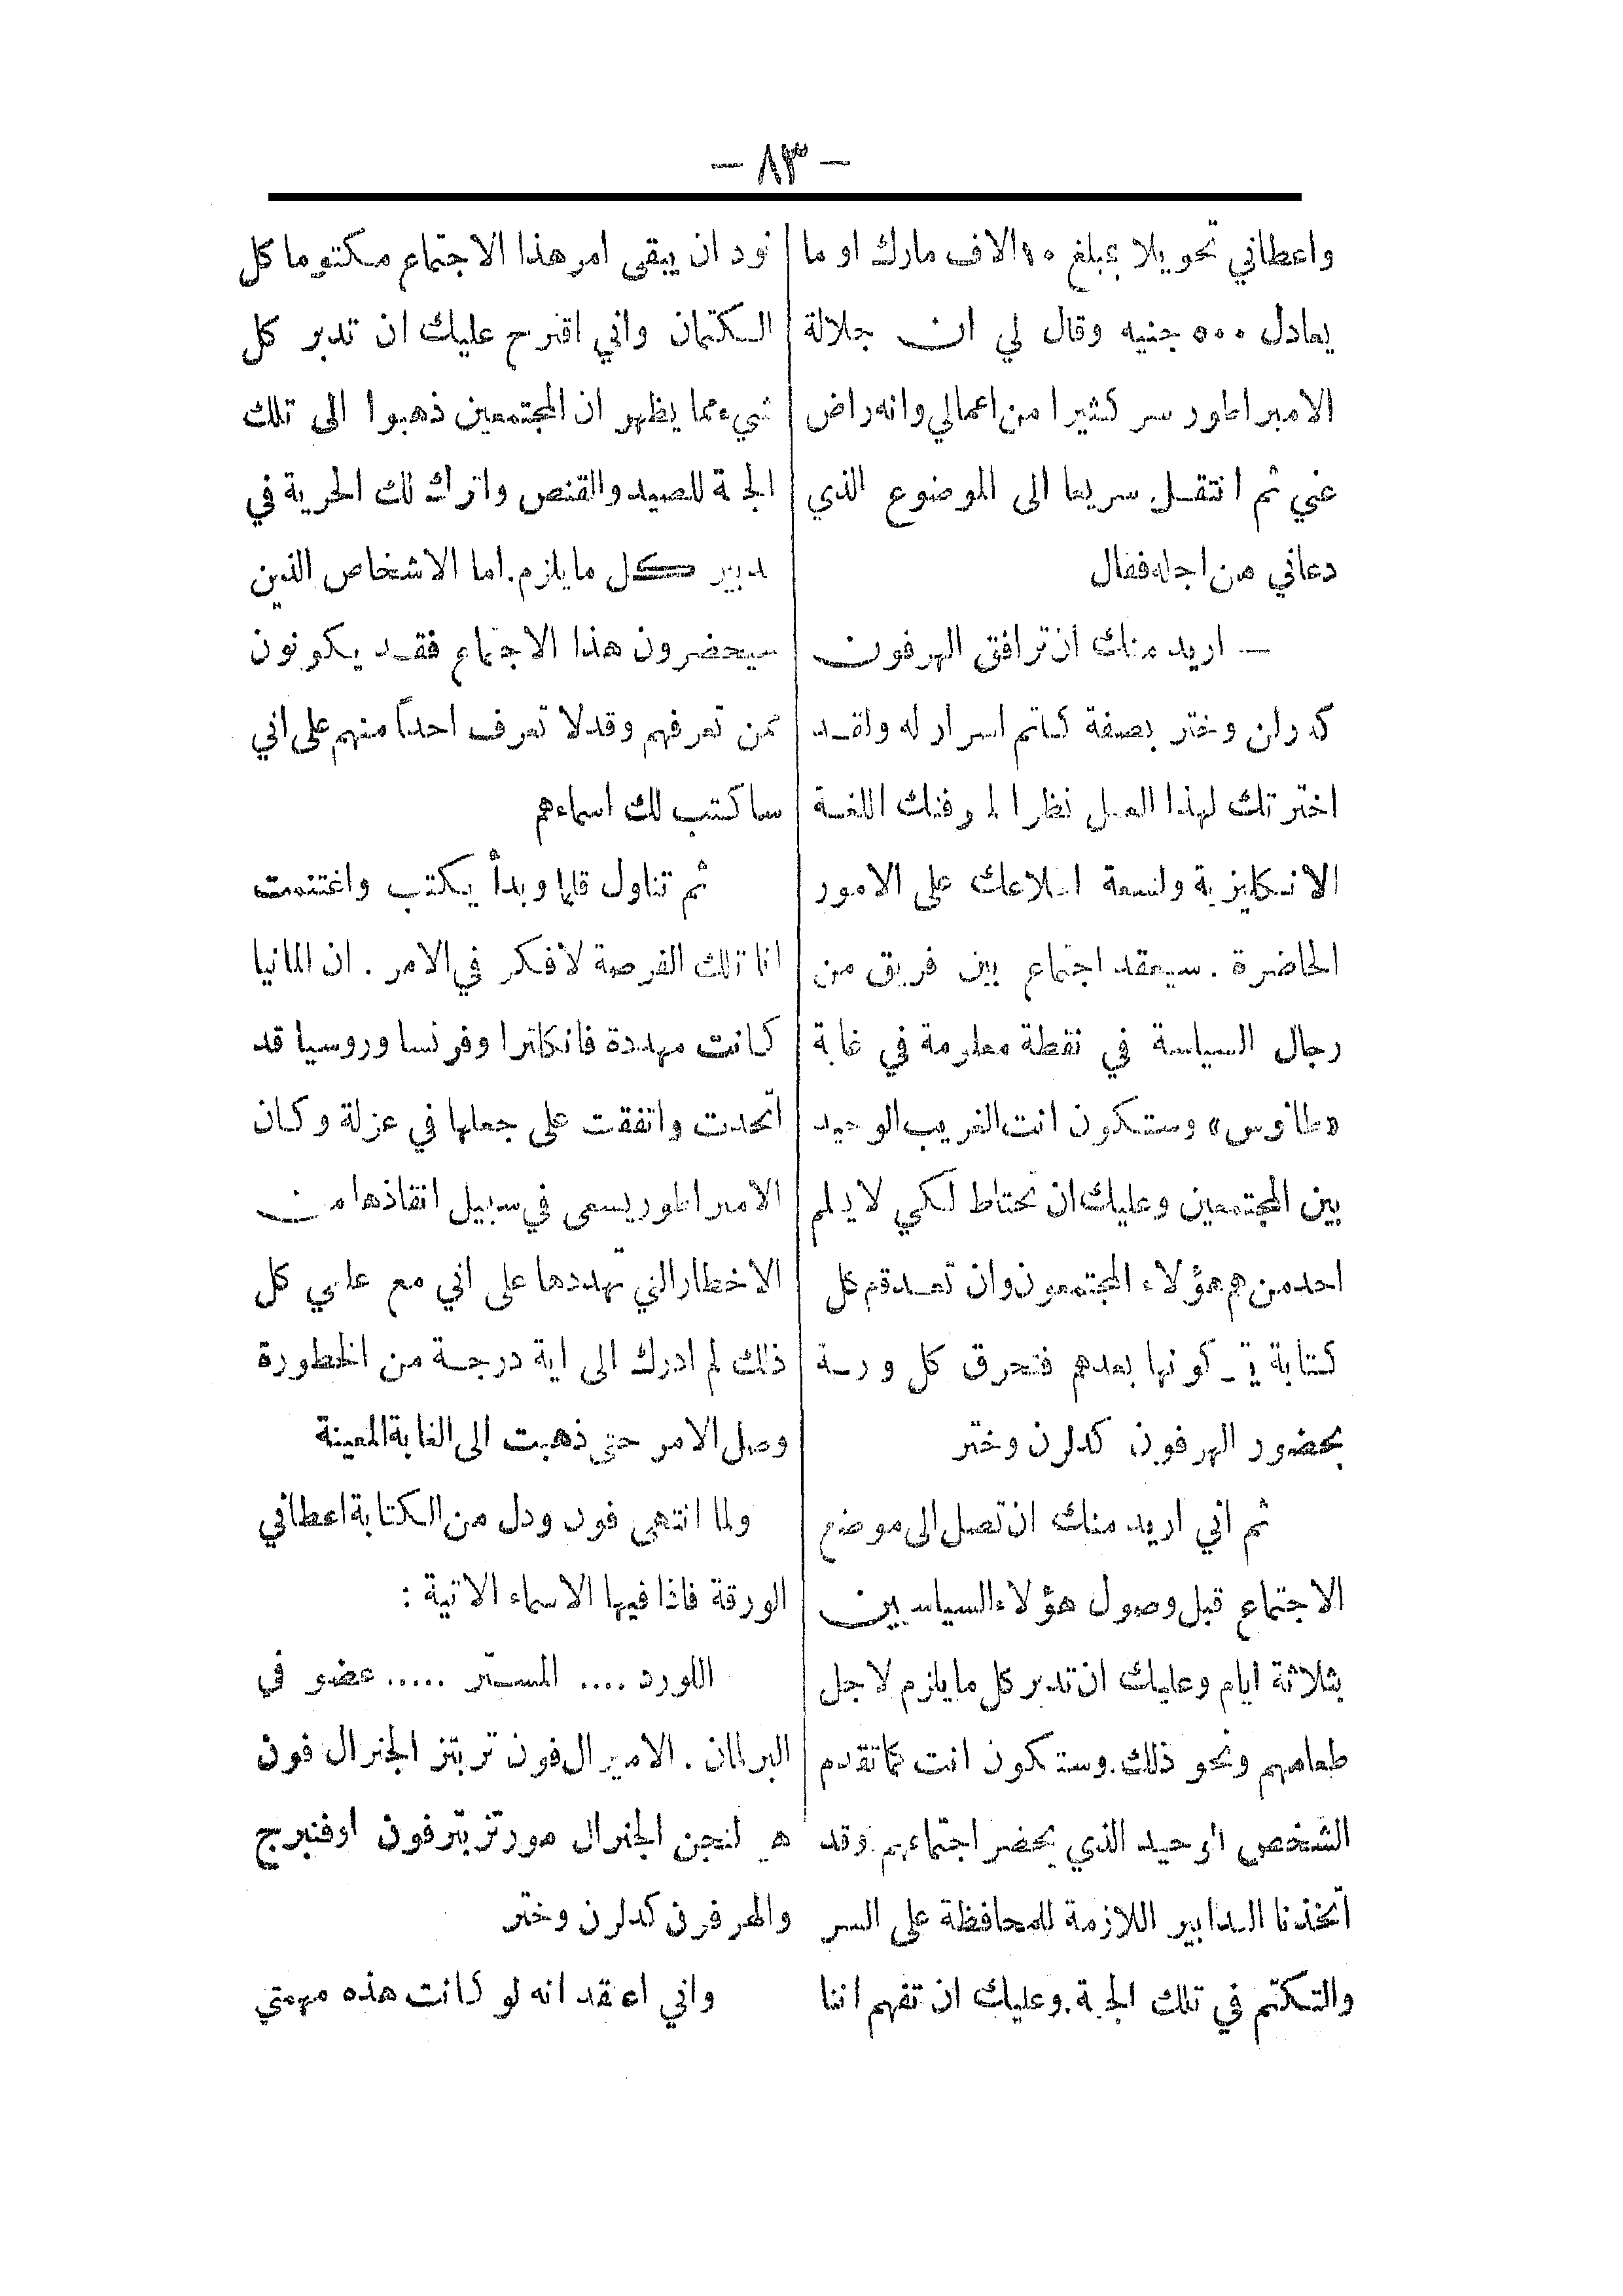 — ٨٣ —
واعطاني تحويلا بمبلغ ١٠ الاف مارك او ما
يعادل ٥٠٠ جنيه وقال لي ان جلالة
الامبراطور سر كثيرا من اعمالي وانه راض
عني ثم انتقل سريعا الى الموضوع الذي
دعاني من اجله فقال
— اريد منك ان ترافق الهرفون
كدرلن وختر بصفة كاتم اسرار له ولقد
اخترتك لهذا العمل نظرا لمعرفتك اللغة
الانكليزية ولسعة اطلاعك على الامور
الحاضرة . سيعقد اجتماع بين فريق من
رجال السياسة في نقطة معلومة في غابة
«طانوس» وستكون انت الغريب الوحيد
بين المجتمعين وعليك ان تحتاط لكي لا يعلم
احد من هم هؤلاء المجتمعون وان تعدقم كل
كتابة يتركونها بعدهم فتحرق كل ورقة
بحضور الهرفون كدلرن وختر
ثم اني اريد منك ان تصل الى موضع
الاجتماع قبل وصول هؤلاء السياسيين
بثلاثة ايام وعليك ان تدبر كل ما يلزم لاجل
طعامهم ونحو ذلك. وستكون انت كما تقدم
الشخص الوحيد الذي يحضر اجتماعهم. وقد
اتخذنا التدابير اللازمة للمحافظة على السر
والتكتم في تلك الجهة. وعليك ان تفهم اننا
نود ان يبقى امر هذا الاجتماع مكتوما كل
الكتمان واني اقترح عليك ان تدبر كل
شيء مما يظهر ان المجتمعين ذهبوا الى تلك
الجهة للصيد والقنص واترك لك الحرية في
تدبير كل ما يلزم. اما الاشخاص الذين
سيحضرون هذا الاجتماع فقد يكونون
ممن تعرفهم وقد لا تعرف احداً منهم على اني
ساكتب لك اسماءهم
ثم تناول قلما وبدأ يكتب واغتنمت
انا تلك الفرصة لافكر في الامر . ان المانيا
كانت مهددة فانكلترا وفرنسا وروسيا قد
اتحدت واتفقت على جعلها في عزلة وكان
الامبراطور يسعى في سبيل انقاذها من
الاخطار التي تهددها على اني مع علمي كل
ذلك لم ادرك الى اية درجة من الخطورة
وصل الامر حتى ذهبت الى الغابة المعينة
ولما انتهى فون ودل من الكتابة اعطاني
الورقة فاذا فيها الاسماء الاتية :
اللورد .... المستر ..... عضو في
البرلمان . الاميرال فون تربتز الجنرال فون
هيرنجن الجنرال مورتز بتر فون اوفنبرج
والهر فون كدلرن وختر
واني اعتقد انه لو كانت هذه مهمتي